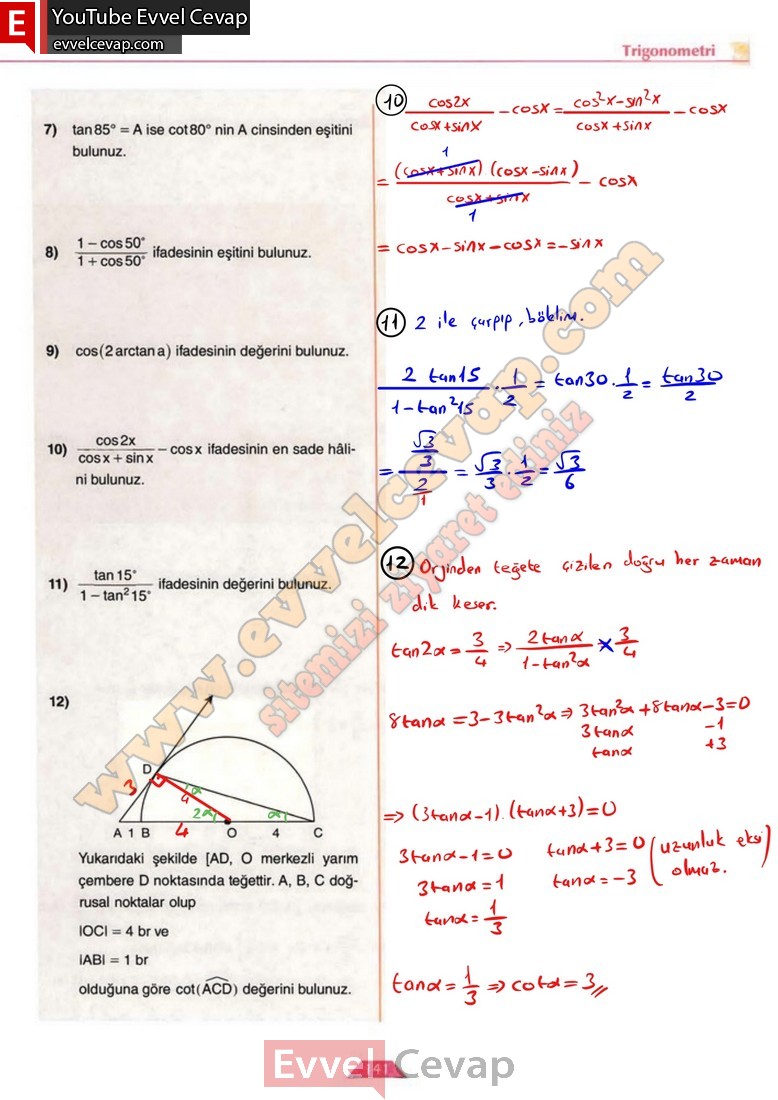 E YouTube Evvel Cevap
evvelcevap.com
Trigonometri
7) tan85° = A ise cot80° nin A cinsinden eşitini
bulunuz.
8) 1 – cos50° / 1 + cos50° ifadesinin eşitini bulunuz.
9) cos(2arctana) ifadesinin değerini bulunuz.
10) cos2x / cosx + sinx – cosx ifadesinin en sade hâli-
ni bulunuz.
11) tan15° / 1 – tan²15° ifadesinin değerini bulunuz.
12)
D
3
4
α
2α
α
A 1 B 4 O 4 C
Yukarıdaki şekilde [AD, O merkezli yarım
çembere D noktasında teğettir. A, B, C doğ-
rusal noktalar olup
|OC| = 4 br ve
|AB| = 1 br
olduğuna göre cot(ACD) değerini bulunuz.
10 cos2x / cosx+sinx – cosx = cos²x–sin²x / cosx+sinx – cosx
= (cosx+sinx) (cosx–sinx) / cosx+sinx – cosx
1
1
= cosx–sinx–cosx=–sinx
11 2 ile çarpıp, bölelim.
2 tan15 / 1–tan²15 · 1/2 = tan30 · 1/2 = tan30 / 2
= √3/3 / 2/1 = √3/3 · 1/2 = √3/6
12 Orjinden teğete çizilen doğru her zaman
dik keser.
tan2α = 3/4 ⇒ 2tanα / 1–tan²α × 3/4
8tanα = 3–3tan²α ⇒ 3tan²α+8tanα–3=0
3tanα –1
tanα +3
⇒ (3tanα–1).(tanα+3)=0
3tanα–1=0 tanα+3=0 (uzunluk eksi
3tanα=1 tanα=–3 olmaz.)
tanα=1/3
tanα=1/3 ⇒ cotα=3
www.evvelcevap.com
sitemizi ziyaret ediniz
141
Evvel Cevap